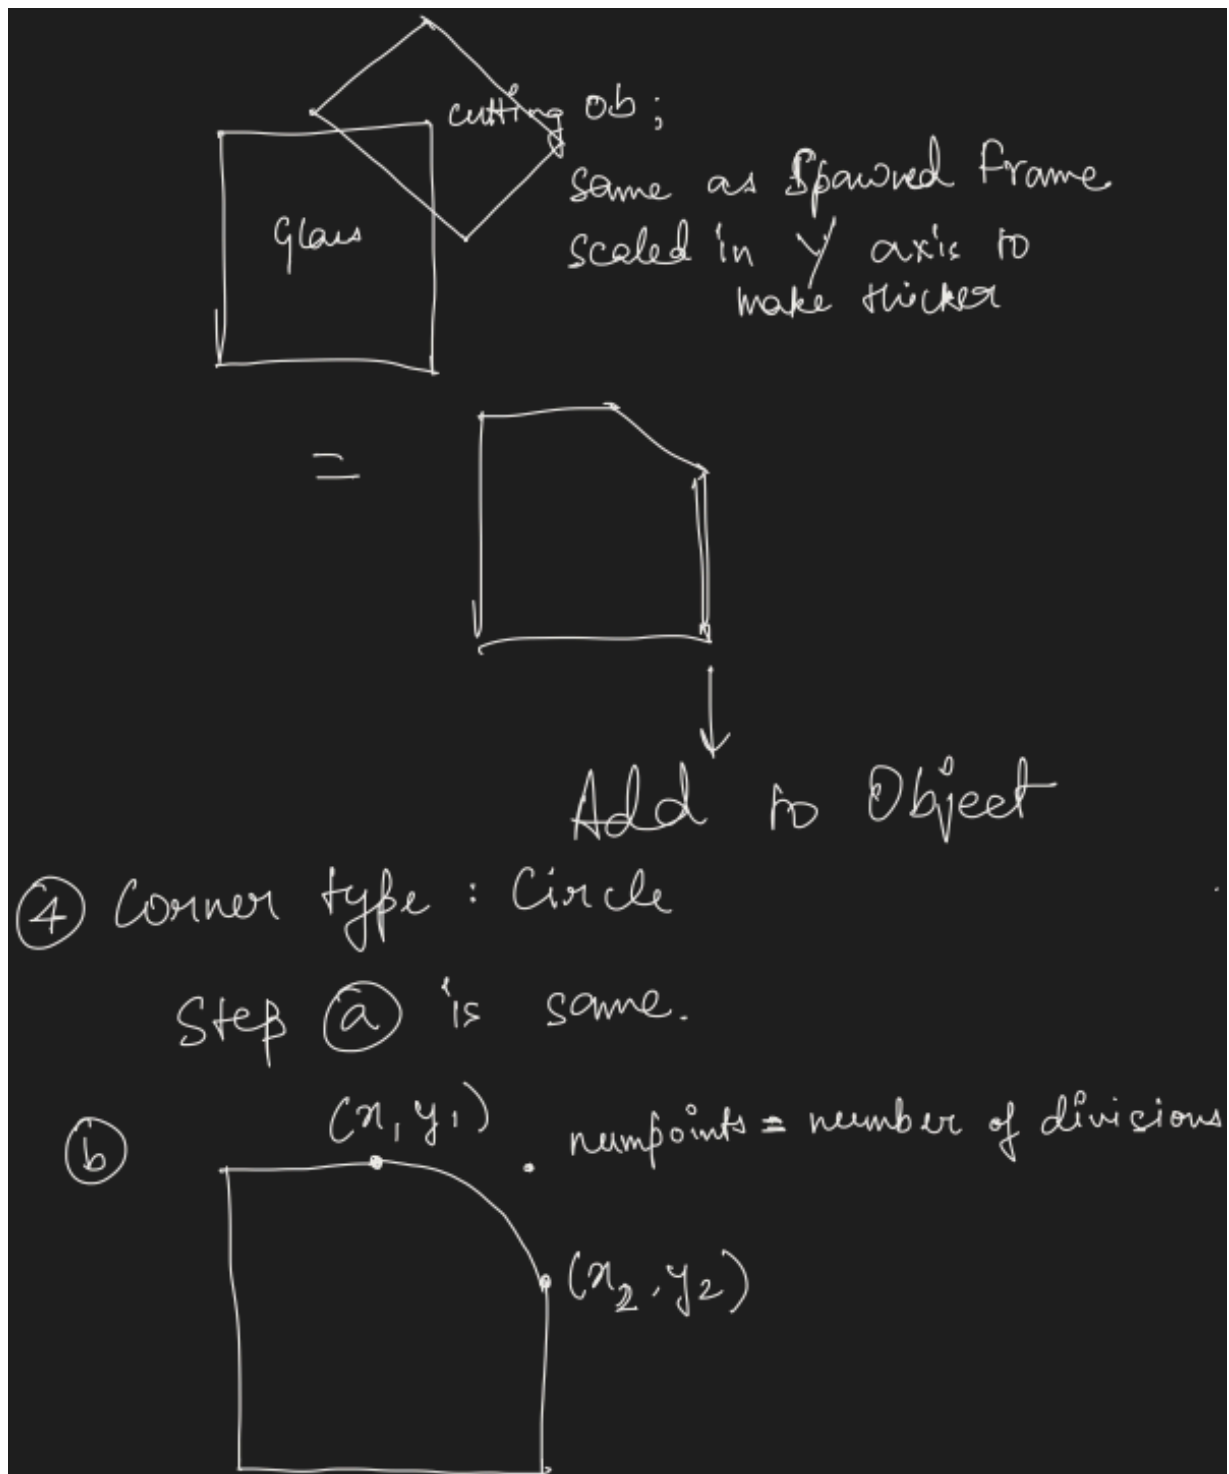 cutting ob;
same as Spawned frame
scaled in Y axis to
make thicker
Glass
=
Add to Object
④ Corner type : Circle
Step ⓐ is same.
ⓑ
(x, y₁)
numpoints = number of divisions
(x₂, y₂)